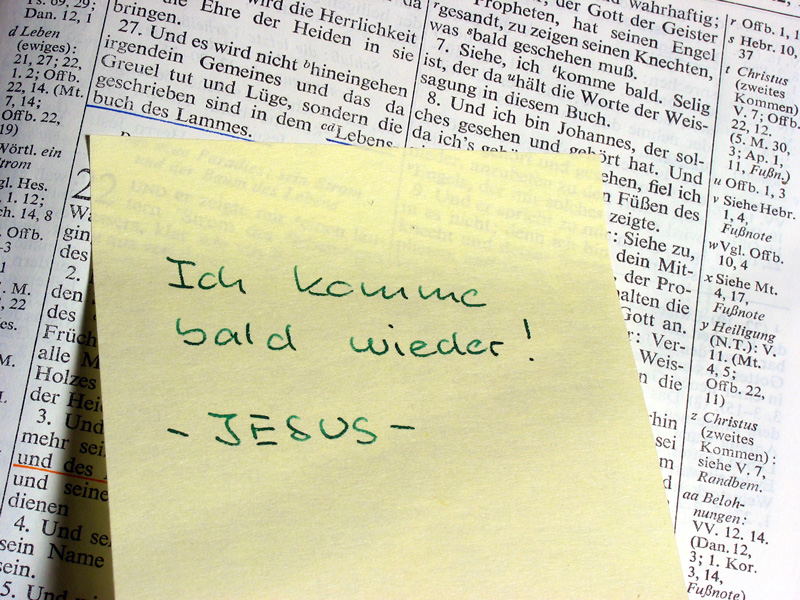 Dan. 12, 1
d Leben
(ewige):
21, 27; 22,
1. 2; Offb.
22, 14. (Mt.
7, 14;
Offb. 22,
19)
Wörtl. ein
Strom
gl. Hes.
1. 12;
ch. 14, 8
Offb.
die Ehre der Heiden in sie
bringen.
27. Und es wird nicht ᵇhineingehen
irgendein Gemeines und das da
Greuel tut und Lüge, sondern die
geschrieben sind in dem ᶜᵈLebens-
buch des Lammes.
2.
den
des
Frücht
alle M
Holzes
der Hei
3. Und
mehr sei
und des
und seine
dienen
4. Und se
sein Name
sein.
5. Und
Ich komme
bald wieder!
- JESUS -
und Wahrhaftig;
Propheten, hat seinen Engel
ʳgesandt, zu zeigen seinen Knechten,
was ˢbald geschehen muß.
7. Siehe, ich ᵗkomme bald. Selig
ist, der da ᵘhält die Worte der Weis-
sagung in diesem Buch.
8. Und ich bin Johannes, der sol-
ches gesehen und gehört hat. Und
da ich's gehört
ehen, fiel ich
n Füßen des
zeigte.
: Siehe zu,
dein Mit-
, der Pro-
alten die
Gott an.
: Ver-
Weis-
n die
hin
sei
r Offb. 1, 1
s Hebr. 10,
37
t Christus
(zweites
Kommen):
V. 7; Offb.
22, 12.
(5. M. 30,
3; Ap. 1,
11, Fußn.)
u Offb. 1, 3
v Siehe Hebr.
1, 4,
Fußnote
w Vgl. Offb.
10, 4
x Siehe Mt.
4, 17,
Fußnote
y Heiligung
(N.T.): V.
11. (Mt.
4, 5;
Offb. 22,
11)
z Christus
(zweites
Kommen):
siehe V. 7,
Randbem.
aa Beloh-
nungen:
VV. 12. 14.
(Dan. 12,
3; 1. Kor.
3, 14,
Fußnote)